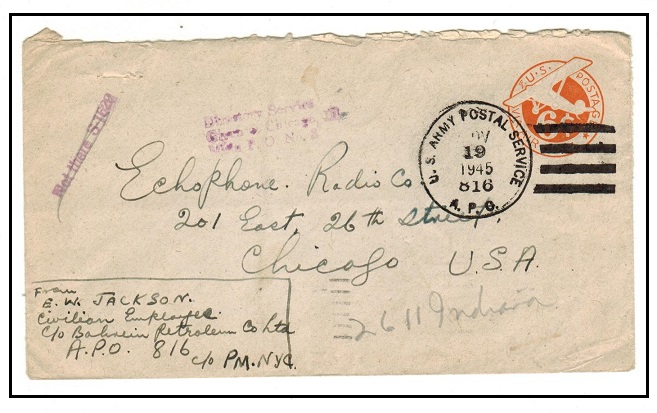 Not there 5-1629
Directory Service
U.S. POSTAGE
6c
AIR
U.S. ARMY POSTAL SERVICE
NOV
19
1945
816
A.P.O.
Echophone. Radio Co.
201 East. 26th Street.
Chicago U.S.A.
2611 Indiana
From
E. W. JACKSON.
Civilian Employee.
C/o Bahrein Petroleum Co Ltd
A.P.O. 816
c/o PM.NYC.